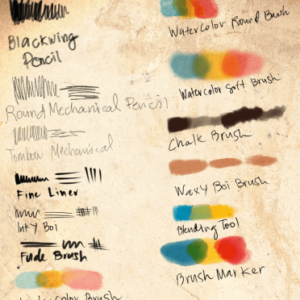 Blackwing
Pencil
Round Mechanical Pencil
Tombow Mechanical
Fine Liner
Inky Boi
Fude Brush
Watercolor Brush
Watercolor Round Brush
Watercolor Soft Brush
Chalk Brush
Waxy Boi Brush
Blending Tool
Brush Marker